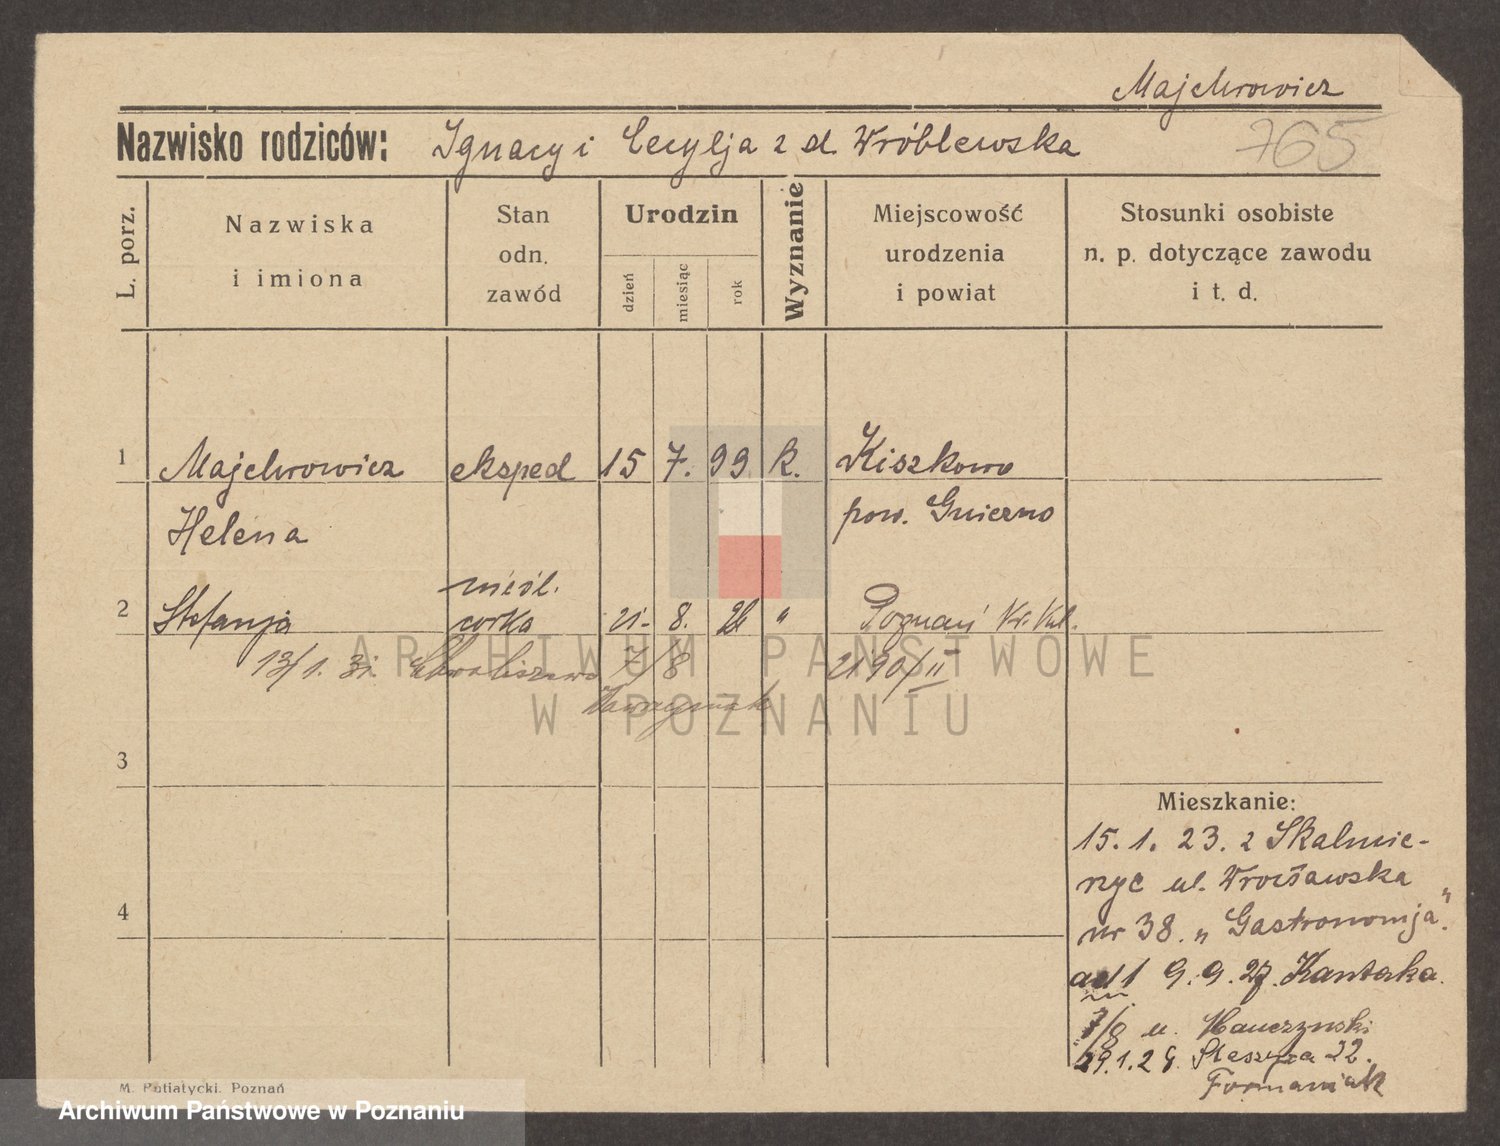 Majchrowicz
Nazwisko rodziców: Ignacy i Cecylja z d. Wróblewska
765
L. porz.
Nazwiska
i imiona
Stan
odn.
zawód
Urodzin
dzień
miesiąc
rok
Wyznanie
Miejscowość
urodzenia
i powiat
Stosunki osobiste
n. p. dotyczące zawodu
i t. d.
1 Majchrowicz eksped 15 7. 99 k. Kiszkowo
Helena pow. Gniezno
nieśl.
2 Stefanja córka 21. 8. " Poznań
13/1. 31. Chwaliszewo 7/8 2190/II
Wawrzyniak
ARCHIWUM PAŃSTWOWE
W POZNANIU
3
4
Mieszkanie:
15. 1. 23. z Skalmie-
rzyc ul. Wrocławska
nr 38. „Gastronomja".
ad 1 9. 9. 27. Kantaka
7/8 u. Hauczynski
29. 1. 29. 22.
Formaniak
M. Putiatycki, Poznań
Archiwum Państwowe w Poznaniu